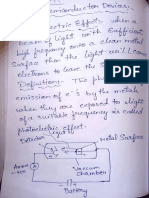 Semiconductor Devices.
Photoelectric Effect: when a
beam of light with sufficient
high frequency onto a clean metal
Surface then the light will cause
electrons to leave the
Definition: The ph
emission of e⁻s by the metals
when they are exposed to light
of a suitable frequency is called
photoelectric effect.
Metal Surface
Vaccum
Chamber
Battery